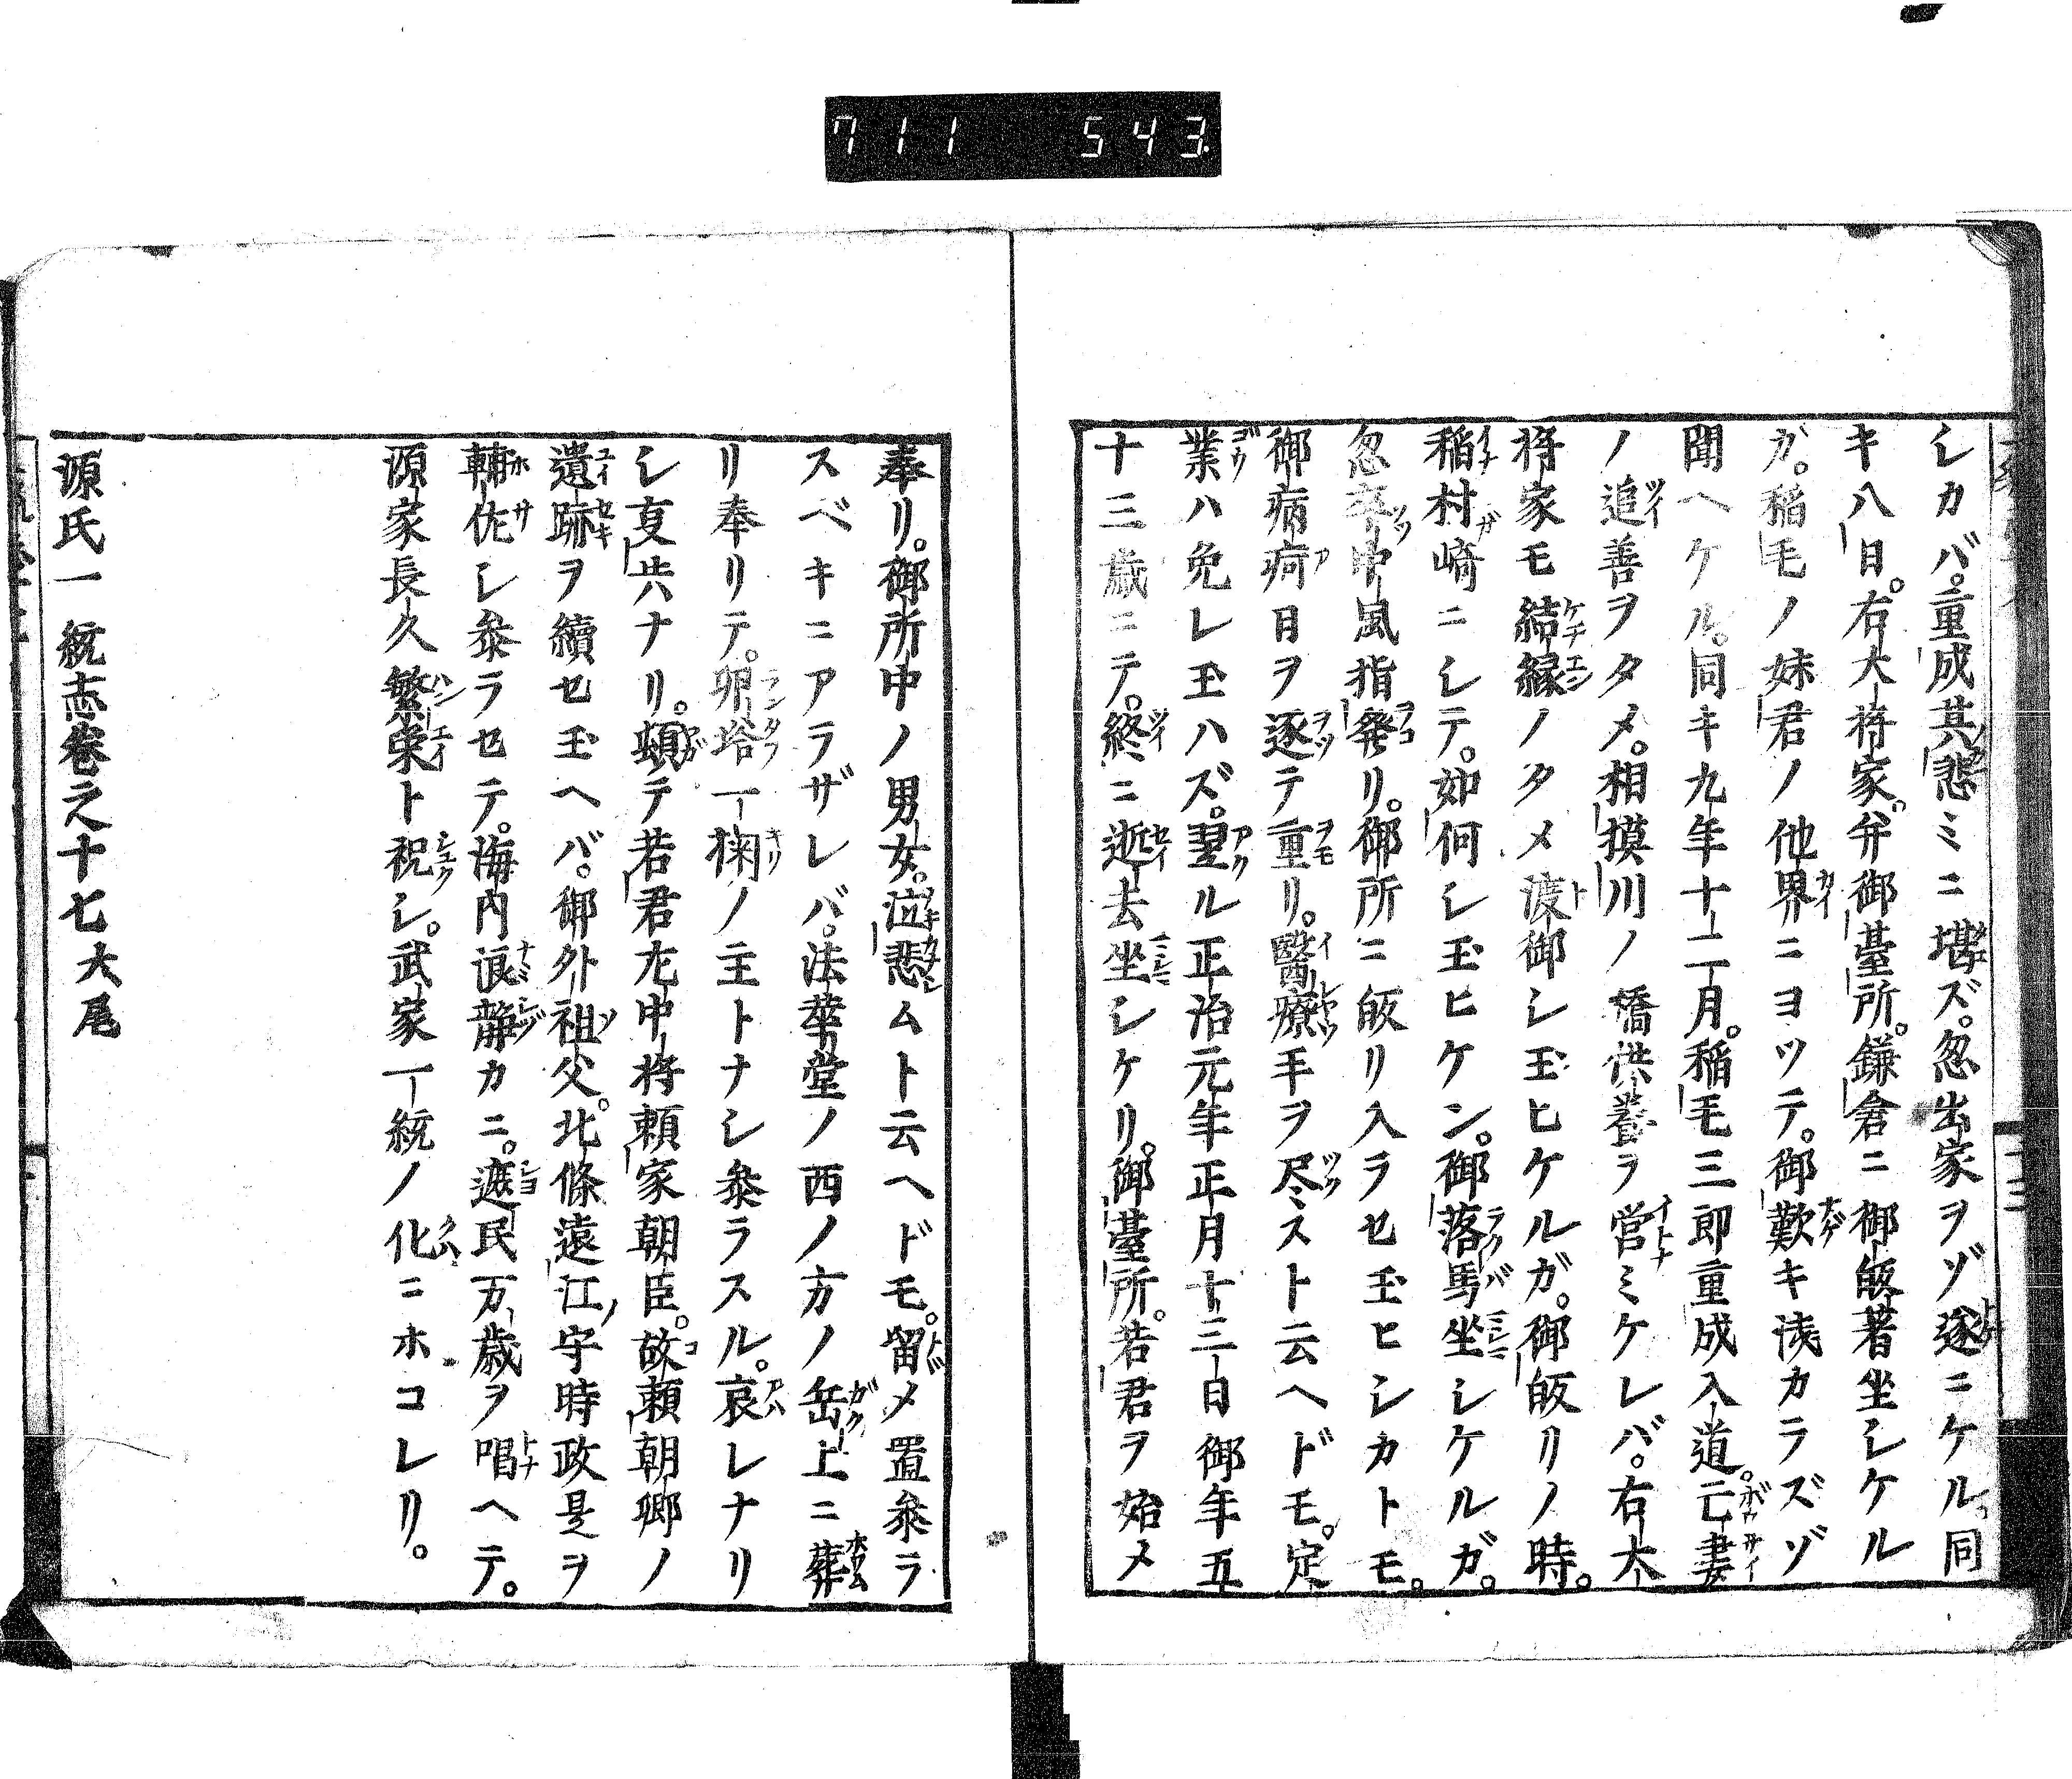 711 543
シカバ。重成其悲ミニ堪ズ。忽出家ヲゾ遂ニケル。同
キ八日。右大将家。并御臺所。鎌倉ニ御皈著坐シケル
ガ。稲毛ノ妹君ノ他界ニヨツテ。御歎キ浅カラズゾ
聞ヘケル。同キ九年十二月。稲毛三郎重成入道。亡妻
ノ追善ヲタメ。相摸川ノ橋供養ヲ営ミケレバ。右大
将家モ結縁ノタメ渡御シ玉ヒケルガ。御皈リノ時。
稲村崎ニシテ。如何シ玉ヒケン。御落馬坐シケルガ。
忽卒中風指発リ。御所ニ皈リ入ラセ玉ヒシカトモ。
御病痾日ヲ逐テ重リ。醫療手ヲ尽スト云ヘドモ。定
業ハ免レ玉ハズ。翌ル正治元年正月十三日御年五
十三歳ニテ。終ニ逝去坐シケリ。御臺所。若君ヲ始メ
奉リ。御所中ノ男女。泣悲ムト云ヘドモ。留メ置参ラ
スベキニアラザレバ。法華堂ノ西ノ方ノ岳上ニ葬
リ奉リテ。卵塔一掬ノ主トナシ参ラスル。哀レナリ
シ㕝共ナリ。頓テ若君左中将頼家朝臣。故頼朝卿ノ
遺跡ヲ續セ玉ヘバ。御外祖父。北條遠江守時政是ヲ
輔佐シ参ラセテ。海内浪静カニ。遮民万歳ヲ唱ヘテ。
源家長久繁栄ト祝シ。武家一統ノ化ニホコレリ。
源氏一統志巻之十七大尾